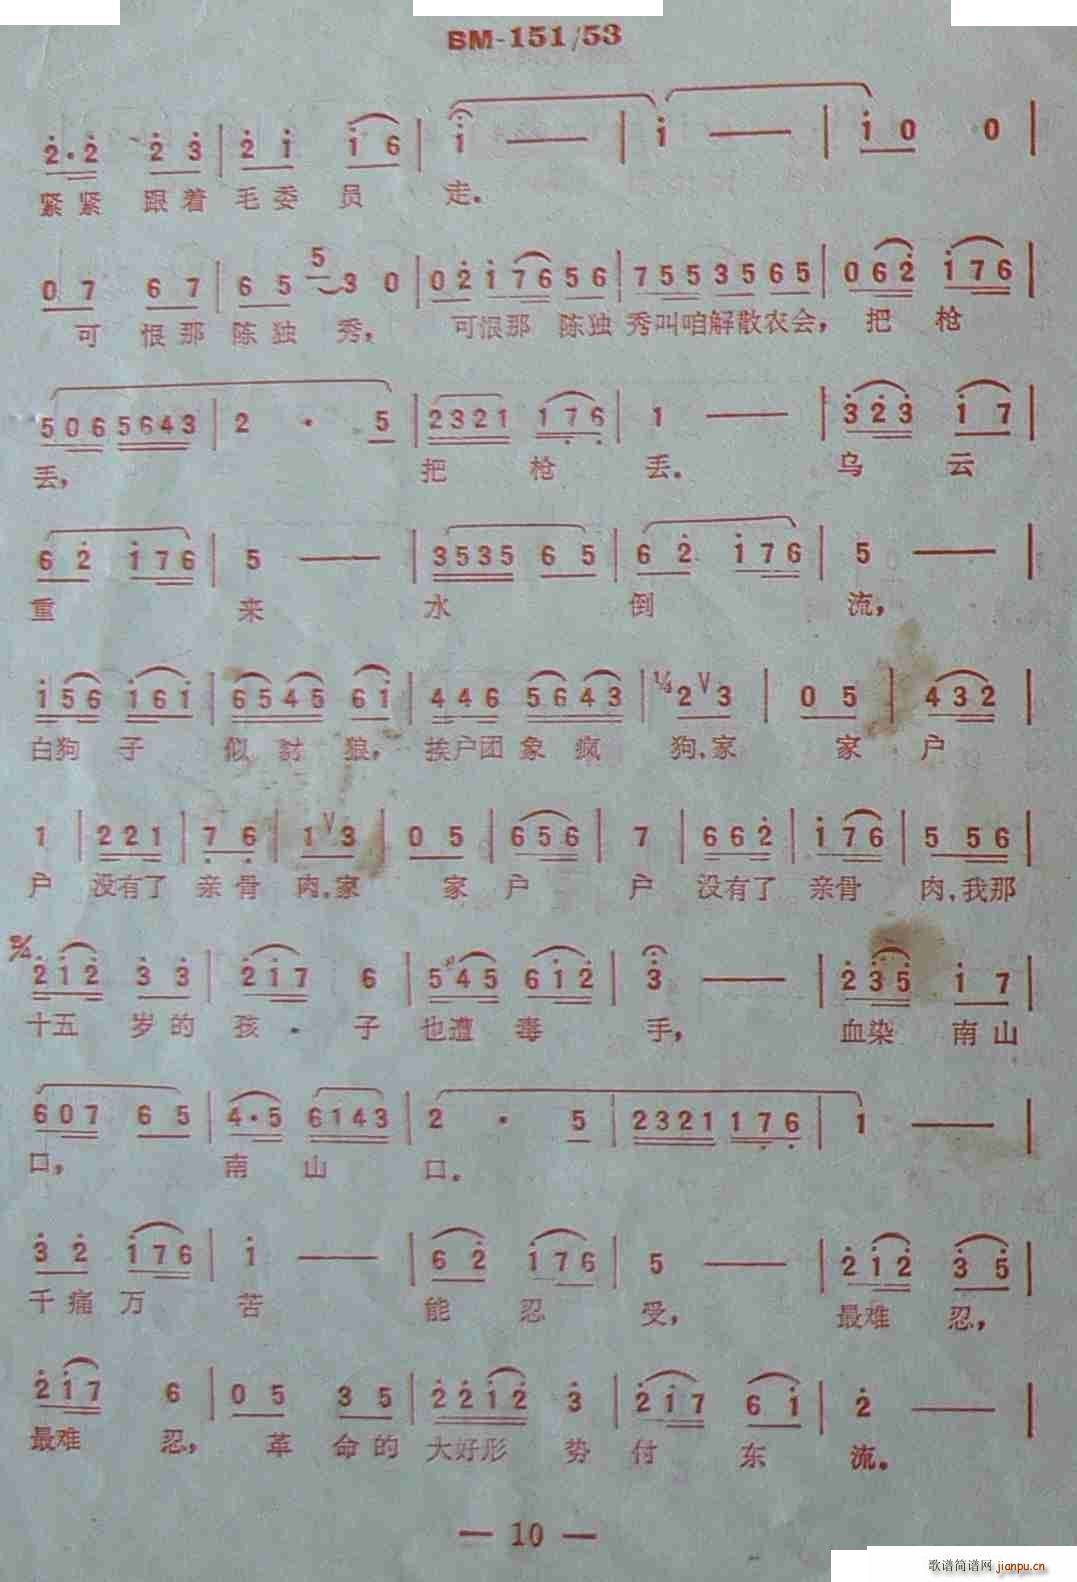 BM-151/53
2·2 2 3 | 2 1 1 6 | 1 — | 1 — | 1 0 0 |
紧紧 跟着 毛委 员 走。
0 7 6 7 | 6 5 5 3 0 | 0 2 1 7 6 5 6 | 7 5 5 3 5 6 5 | 0 6 2 1 7 6 |
可 恨那 陈独 秀， 可恨那 陈独 秀叫咱解散农会， 把 枪
5 0 6 5 6 4 3 | 2 · 5 | 2 3 2 1 1 7 6 | 1 — | 3 2 3 1 7 |
丢， 把 枪 丢。 乌 云
6 2 1 7 6 | 5 — | 3 5 3 5 6 5 | 6 2 1 7 6 | 5 — |
重 来 水 倒 流，
1 5 6 1 6 1 | 6 5 4 5 6 1 | 4 4 6 5 6 4 3 | 1/4 2 V 3 | 0 5 | 4 3 2 |
白狗 子 似 豺 狼， 挨户团 象 疯 狗，家 家 户
1 | 2 2 1 | 7 6 | 1 V 3 | 0 5 | 6 5 6 | 7 | 6 6 2 | 1 7 6 | 5 5 6 |
户 没有了 亲骨 肉，家 家 户 户 没有了 亲骨 肉，我那
2/4 2 1 2 3 3 | 2 1 7 6 | 5 4 5 6 1 2 | 3 — | 2 3 5 1 7 |
十五 岁的 孩 子 也遭 毒 手， 血染 南山
6 0 7 6 5 | 4·5 6 1 4 3 | 2 · 5 | 2 3 2 1 1 7 6 | 1 — |
口， 南 山 口。
3 2 1 7 6 | 1 — | 6 2 1 7 6 | 5 — | 2 1 2 3 5 |
千痛万 苦 能 忍 受， 最难 忍，
2 1 7 6 | 0 5 3 5 | 2 2 1 2 3 | 2 1 7 6 1 | 2 — |
最难 忍， 革 命的 大好形 势 付 东 流。
— 10 —
歌谱简谱网 jianpu.cn